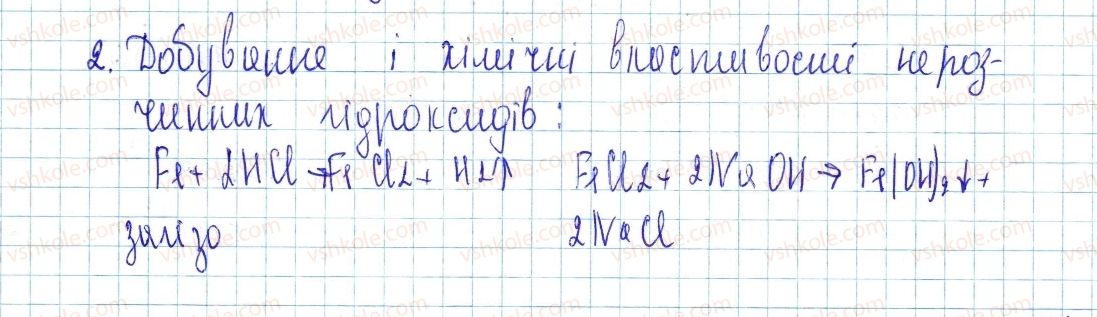 2. Добування і хімічні властивості нероз-
чинних гідроксидів:
Fe + 2HCl → FeCl2 + H2↑ FeCl2 + 2NaOH → Fe(OH)2↓ +
залізо 2NaCl